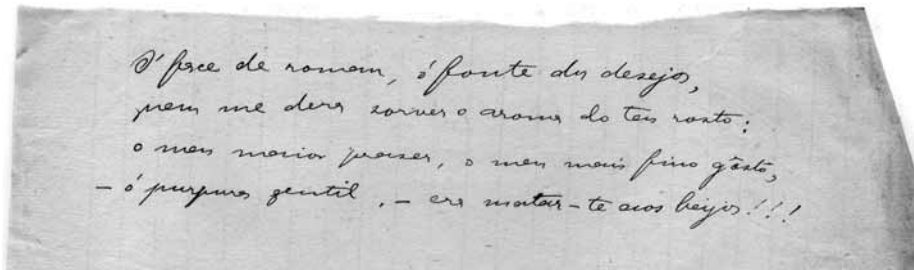 Ó face de romam, ó fonte dos desejos,
quem me dera sorver o aroma do teu rosto;
o meu maior praser, o meu mais fino gôsto,
– ó purpura gentil, – era matar-te aos beijos!!!